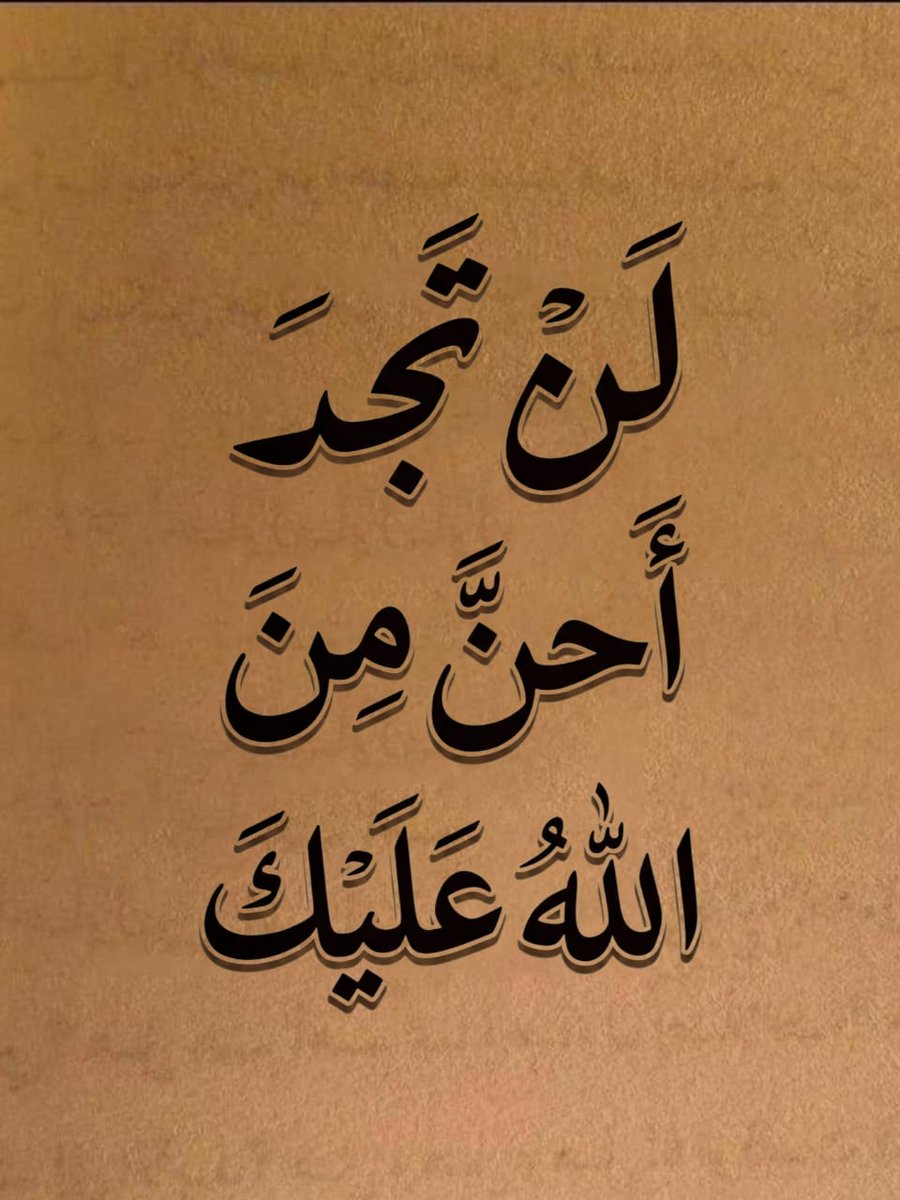 لَنْ تَجدَ
أَحنَّ مِنَ
اللّٰهُ عَلَيْكَ